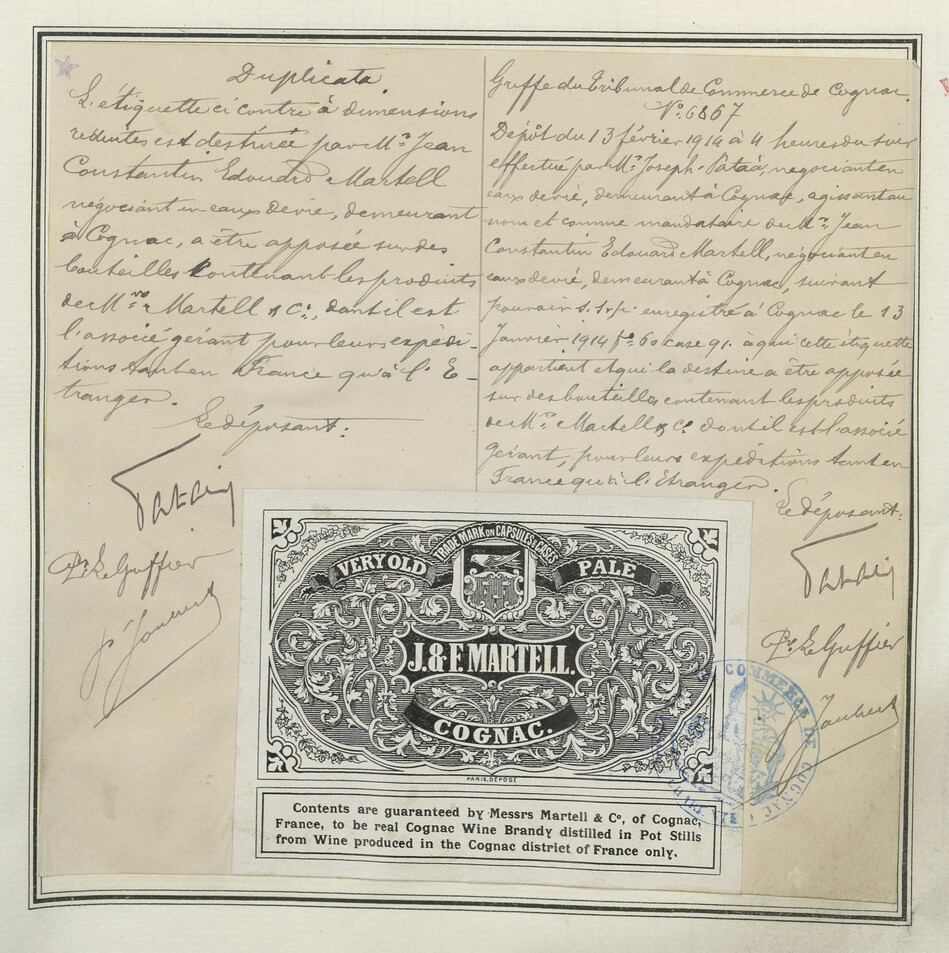 Duplicata.
L'étiquette ci contre à dimensions
réduites est destinée par Mr. Jean
Constantin Edouard Martell
négociant en eaux de vie, demeurant
à Cognac, a être apposée sur des
bouteilles contenant les produits
de Mrs. Martell & Co., dont il est
l'associé gérant pour leurs expédi-
tions tant en France qu'à l'E-
tranger.
Le déposant:
Pr Le Greffier
Greffe du Tribunal de Commerce de Cognac.
No. 6867
Dépôt du 13 février 1914 à 4 heures du soir
effectué par Mr. Joseph négociant en
eaux de vie, demeurant à Cognac, agissant au
nom et comme mandataire de Mr. Jean
Constantin Edouard Martell, négociant en
eaux de vie, demeurant à Cognac, suivant
pouvoir s.s.p. enregistré à Cognac le 13
Janvier 1914 fo. 60 case 91. à qui cette étiquette
appartient et qui la destine a être apposée
sur des bouteilles contenant les produits
de Mrs. Martell & Co. dont il est l'associé
gérant, pour leurs expéditions tant en
France qu'à l'Etranger.
Le déposant:
Pr Le Greffier
Joubert
TRADE MARK ON CAPSULES & CASES
VERY OLD PALE
J. & F. MARTELL.
COGNAC.
PARIS, DÉPOSÉ
Contents are guaranteed by Messrs Martell & Co, of Cognac,
France, to be real Cognac Wine Brandy distilled in Pot Stills
from Wine produced in the Cognac district of France only.
COMMERCE DE COGNAC